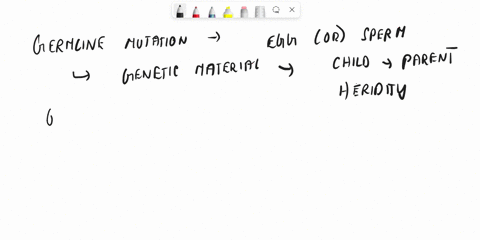 GERMLINE MUTATION → EGG (OR) SPERM
↳ GENETIC MATERIAL → CHILD → PARENT
HERIDITY